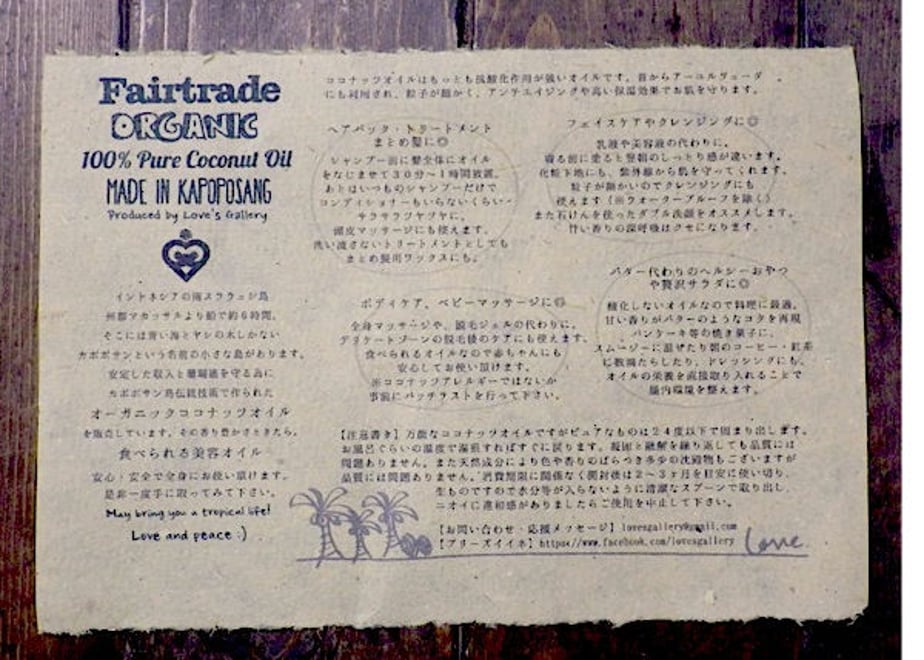 Fairtrade
ORGANIC
100% Pure Coconut Oil
MADE IN KAPOPOSANG
Produced by Love's Gallery
インドネシアの南スラウェシ島
州都マカッサルより船で約6時間。
そこには青い海とヤシの木しかない
カポポサンという名前の小さな島があります。
安定した収入と珊瑚礁を守る為に
カポポサン島伝統技術で作られた
オーガニックココナッツオイル
を販売しています。その香り豊かさときたら。
食べられる美容オイル
安心・安全で全身にお使い頂けます。
是非一度手に取ってみて下さい。
May bring you a tropical life!
Love and peace :)
ココナッツオイルはもっとも抗酸化作用が強いオイルです。昔からアーユルヴェーダ
にも利用され、粒子が細かく、アンチエイジングや高い保湿効果でお肌を守ります。
ヘアパック・トリートメント
まとめ髪に◎
シャンプー前に髪全体にオイル
をなじませて30分〜1時間放置。
あとはいつものシャンプーだけで
コンディショナーもいらないくらい
サラサラツヤツヤに。
頭皮マッサージにも使えます。
洗い流さないトリートメントとしても
まとめ髪用ワックスにも。
フェイスケアやクレンジングに◎
乳液や美容液の代わりに。
寝る前に塗ると翌朝のしっとり感が違います。
化粧下地にも、紫外線から肌を守ってくれます。
粒子が細かいのでクレンジングにも
使えます(※ウォータープルーフを除く)
また石けんを使ったダブル洗顔をオススメします。
甘い香りの深呼吸はクセになります。
ボディケア、ベビーマッサージに◎
全身マッサージや、脱毛ジェルの代わりに。
デリケートゾーンの脱毛後のケアにも使えます。
食べられるオイルなので赤ちゃんにも
安心してお使い頂けます。
※ココナッツアレルギーではないか
事前にパッチテストを行って下さい。
バター代わりのヘルシーおやつ
や贅沢サラダに◎
酸化しないオイルなので料理に最適。
甘い香りがバターのようなコクを再現
パンケーキ等の焼き菓子に、
スムージーに混ぜたり朝のコーヒー・紅茶
に数滴たらしたり、ドレッシングにも。
オイルの栄養を直接取り入れることで
腸内環境を整えます。
【注意書き】万能なココナッツオイルですがピュアなものは24度以下で固まり出します。
お風呂ぐらいの温度で湯煎すればすぐに戻ります。凝固と融解を繰り返しても品質には
問題ありません。また天然成分により色や香りのばらつき多少の沈殿物もございますが
品質には問題ありません。消費期限に関係なく開封後は2〜3ヶ月を目安に使い切り、
生ものですので水分等が入らないように清潔なスプーンで取り出し、
ニオイに違和感がありましたらご使用を中止して下さい。
【お問い合わせ・応援メッセージ】lovesgallery@gmail.com
【プリーズイイネ】https://www.facebook.com/lovesgallery
Love